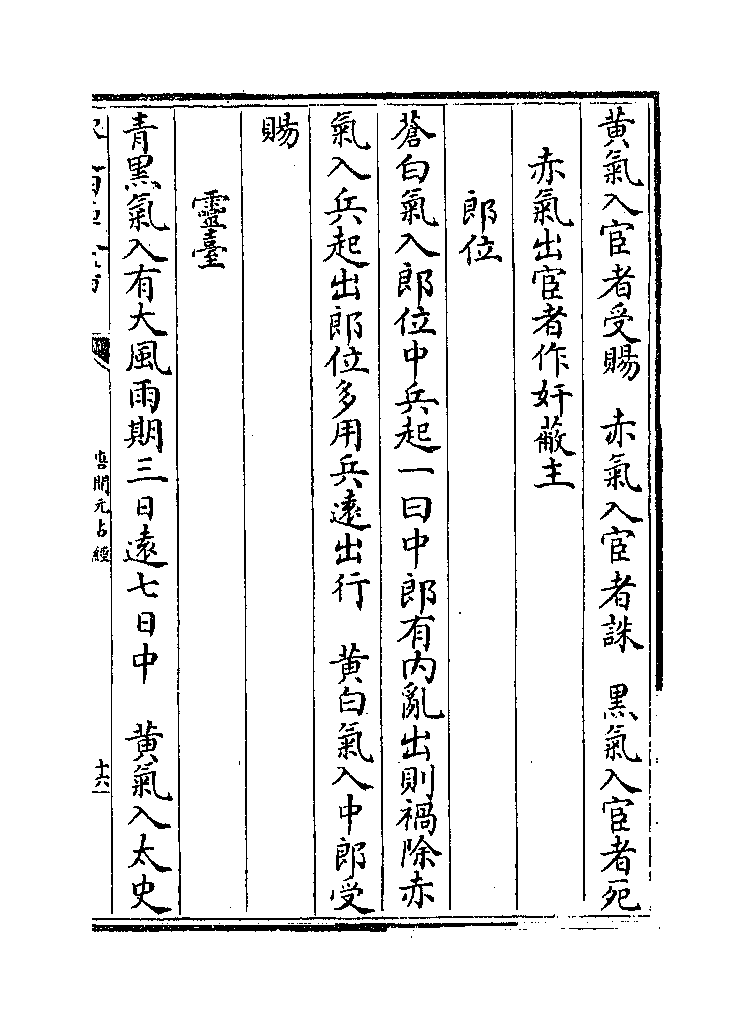 黄氣入宦者受賜　赤氣入宦者誅　黒氣入宦者死
赤氣出宦者作奸蔽主
郎位
蒼白氣入郎位中兵起一曰中郎有内亂出則禍除赤
氣入兵起出郎位多用兵遠出行　黄白氣入中郎受
賜
靈臺
青黒氣入有大風雨期三日遠七日中　黄氣入太史
開元占經
十六